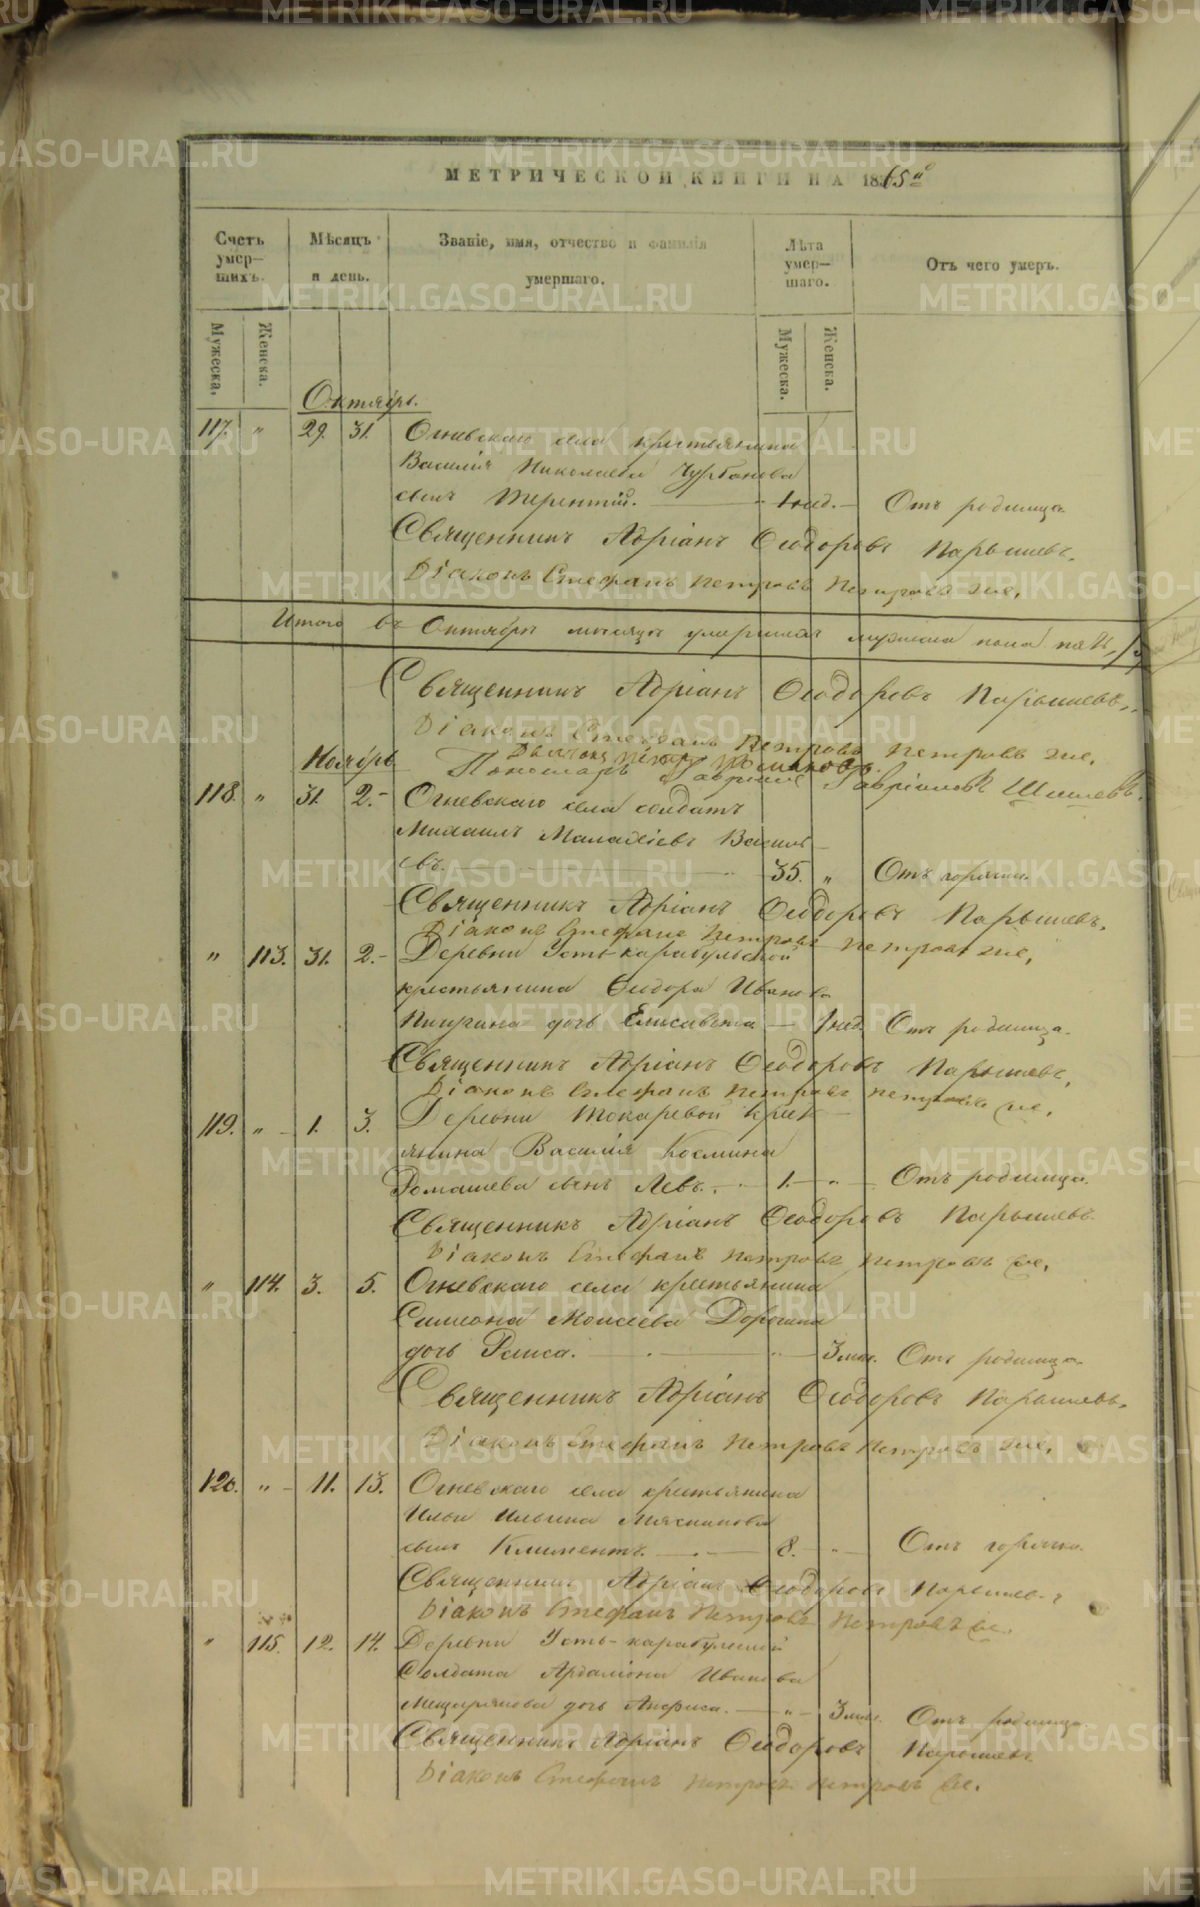 МЕТРИЧЕСКОЙ КНИГИ НА 1865й
Счетъ умер-шихъ.
Мѣсяцъ и день.
Званіе, имя, отчество и фамилія умершаго.
Лѣта умер-шаго.
Отъ чего умеръ.
Мужеска.
Женска.
Мужеска.
Женска.
Октябрь.
117. " 29. 31. Огневскаго села крестьянина
Василія Николаева Чурбанова
сынъ Терентій. 1 нед. Отъ родимца
Священникъ Адріанъ Ѳеодоровъ Парышевъ.
Діаконъ Стефанъ Петровъ Петровъ же.
Итого въ Октябрѣ мѣсяцѣ умершихъ мужеска пола
Священникъ Адріанъ Ѳеодоровъ Парышевъ.
Діаконъ Стефанъ Петровъ Петровъ же.
Ноябрь
Пономарь Гавріилъ Гавріиловъ
118. " 31. 2. Огневскаго села солдатъ
Михаилъ Малахіевъ Василь-
евъ. 35. " Отъ горячки.
Священникъ Адріанъ Ѳеодоровъ Парышевъ.
Діаконъ Стефанъ Петровъ Петровъ же.
" 113. 31. 2. Деревни Усть-карабульской
крестьянина Ѳеодора Иванова
дочь Елисавета 1 нед. Отъ родимца.
Священникъ Адріанъ Ѳеодоровъ Парышевъ.
Діаконъ Стефанъ Петровъ Петровъ же.
119. " 1. 3. Деревни Токаревой крест-
янина Василія Космина
Ромашева сынъ Левъ. 1. " Отъ родимца.
Священникъ Адріанъ Ѳеодоровъ Парышевъ.
Діаконъ Стефанъ Петровъ Петровъ же.
" 114. 3. 5. Огневскаго села крестьянина
Симеона Моисеева Дорогина
дочь Раиса. 3 мес. Отъ родимца.
Священникъ Адріанъ Ѳеодоровъ Парышевъ.
Діаконъ Стефанъ Петровъ Петровъ же.
120. " 11. 13. Огневскаго села крестьянина
Ильи Ильина Мясникова
сынъ Климентъ. 8. " Отъ горячки.
Священникъ Адріанъ Ѳеодоровъ Парышевъ
Діаконъ Стефанъ Петровъ Петровъ же.
" 115. 12. 14. Деревни Усть-карабульской
Солдата Ардаліона Иванова
Мещерякова дочь Анфиса. " 3 мес. Отъ родимца.
Священникъ Адріанъ Ѳеодоровъ Парышевъ
Діаконъ Стефанъ Петровъ Петровъ же.
METRIKI.GASO-URAL.RU